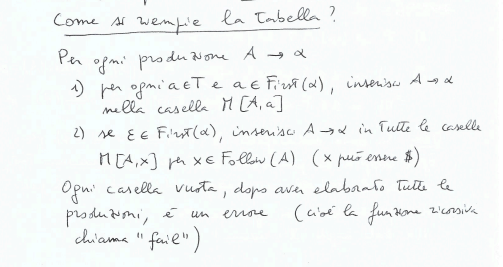 Come si riempie la tabella?
Per ogni produzione A → α
1) per ogni a ∈ T e a ∈ First(α), inserisci A → α
nella casella M[A,a]
2) se ε ∈ First(α), inserisci A → α in tutte le caselle
M[A,x] per x ∈ Follow(A) (x può essere $)
Ogni casella vuota, dopo aver elaborato tutte le
produzioni, è un errore (cioè la funzione ricorsiva
chiama "fail")